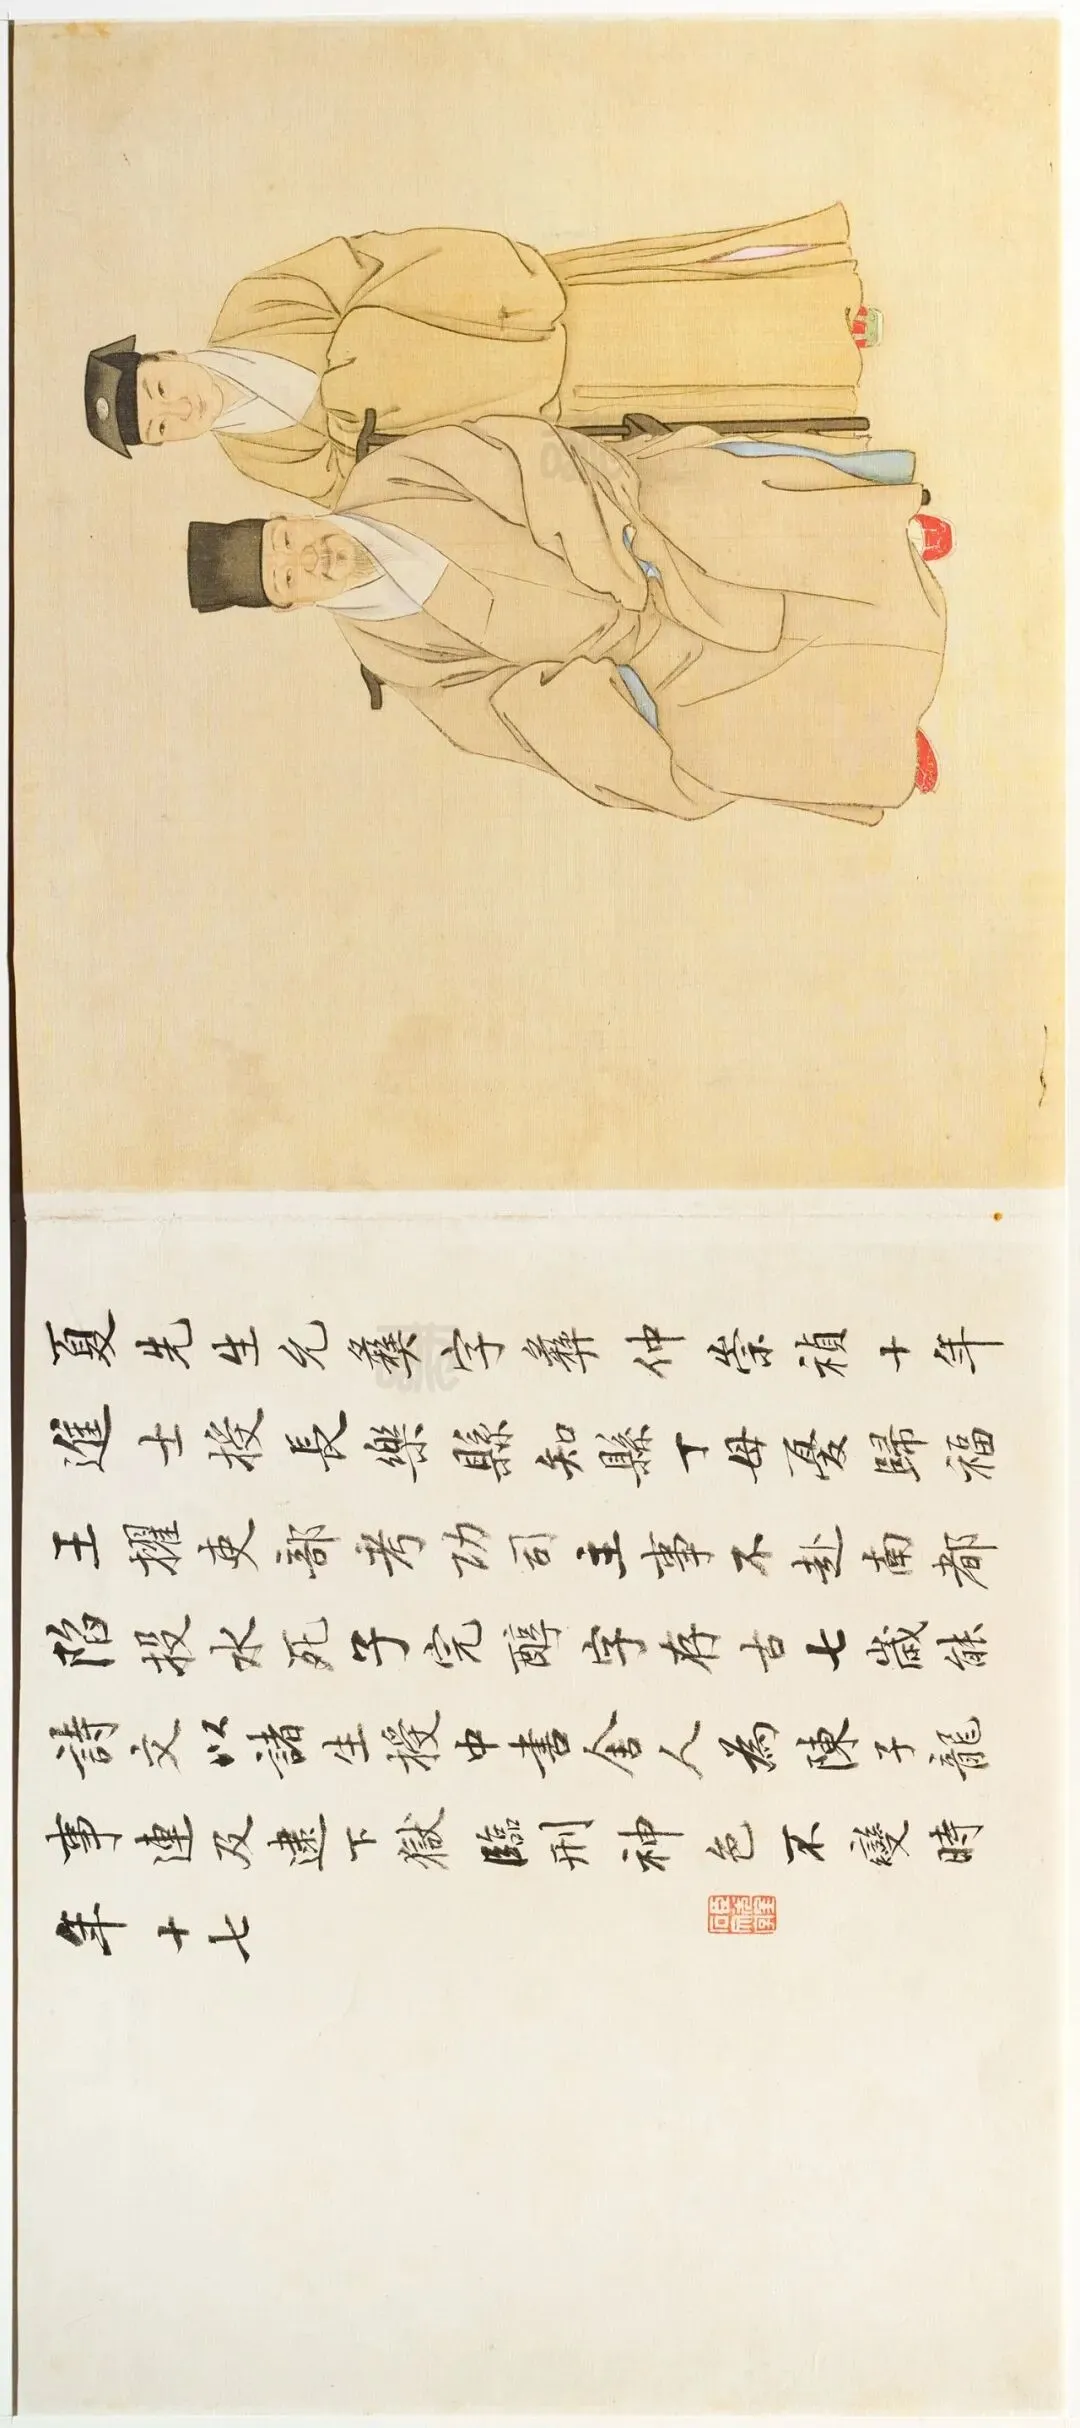 夏先生允彝字彝仲崇禎十年
進士授長樂縣知縣丁母憂歸福
王擢吏部考功司主事不赴南都
陷投水死子完醇字存古七歲能
詩文以諸生授中書舍人為陳子龍
事連及逮下獄臨刑神色不變時
年十七